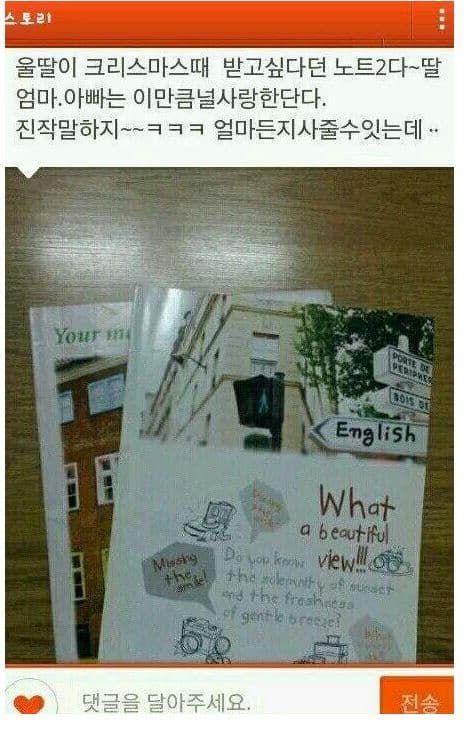 스토리
울딸이 크리스마스때 받고싶다던 노트2다~딸
엄마.아빠는 이만큼널사랑한단다.
진작말하지~~ㅋㅋㅋ 얼마든지사줄수잇는데 ··
Your
PORTE DE
BOIS DE
English
What
a beautiful
view!!!
Missing
the smile!
Do you know
the solemnity of sunset
and the freshness
of gentle breeze?
What
댓글을 달아주세요.
전송